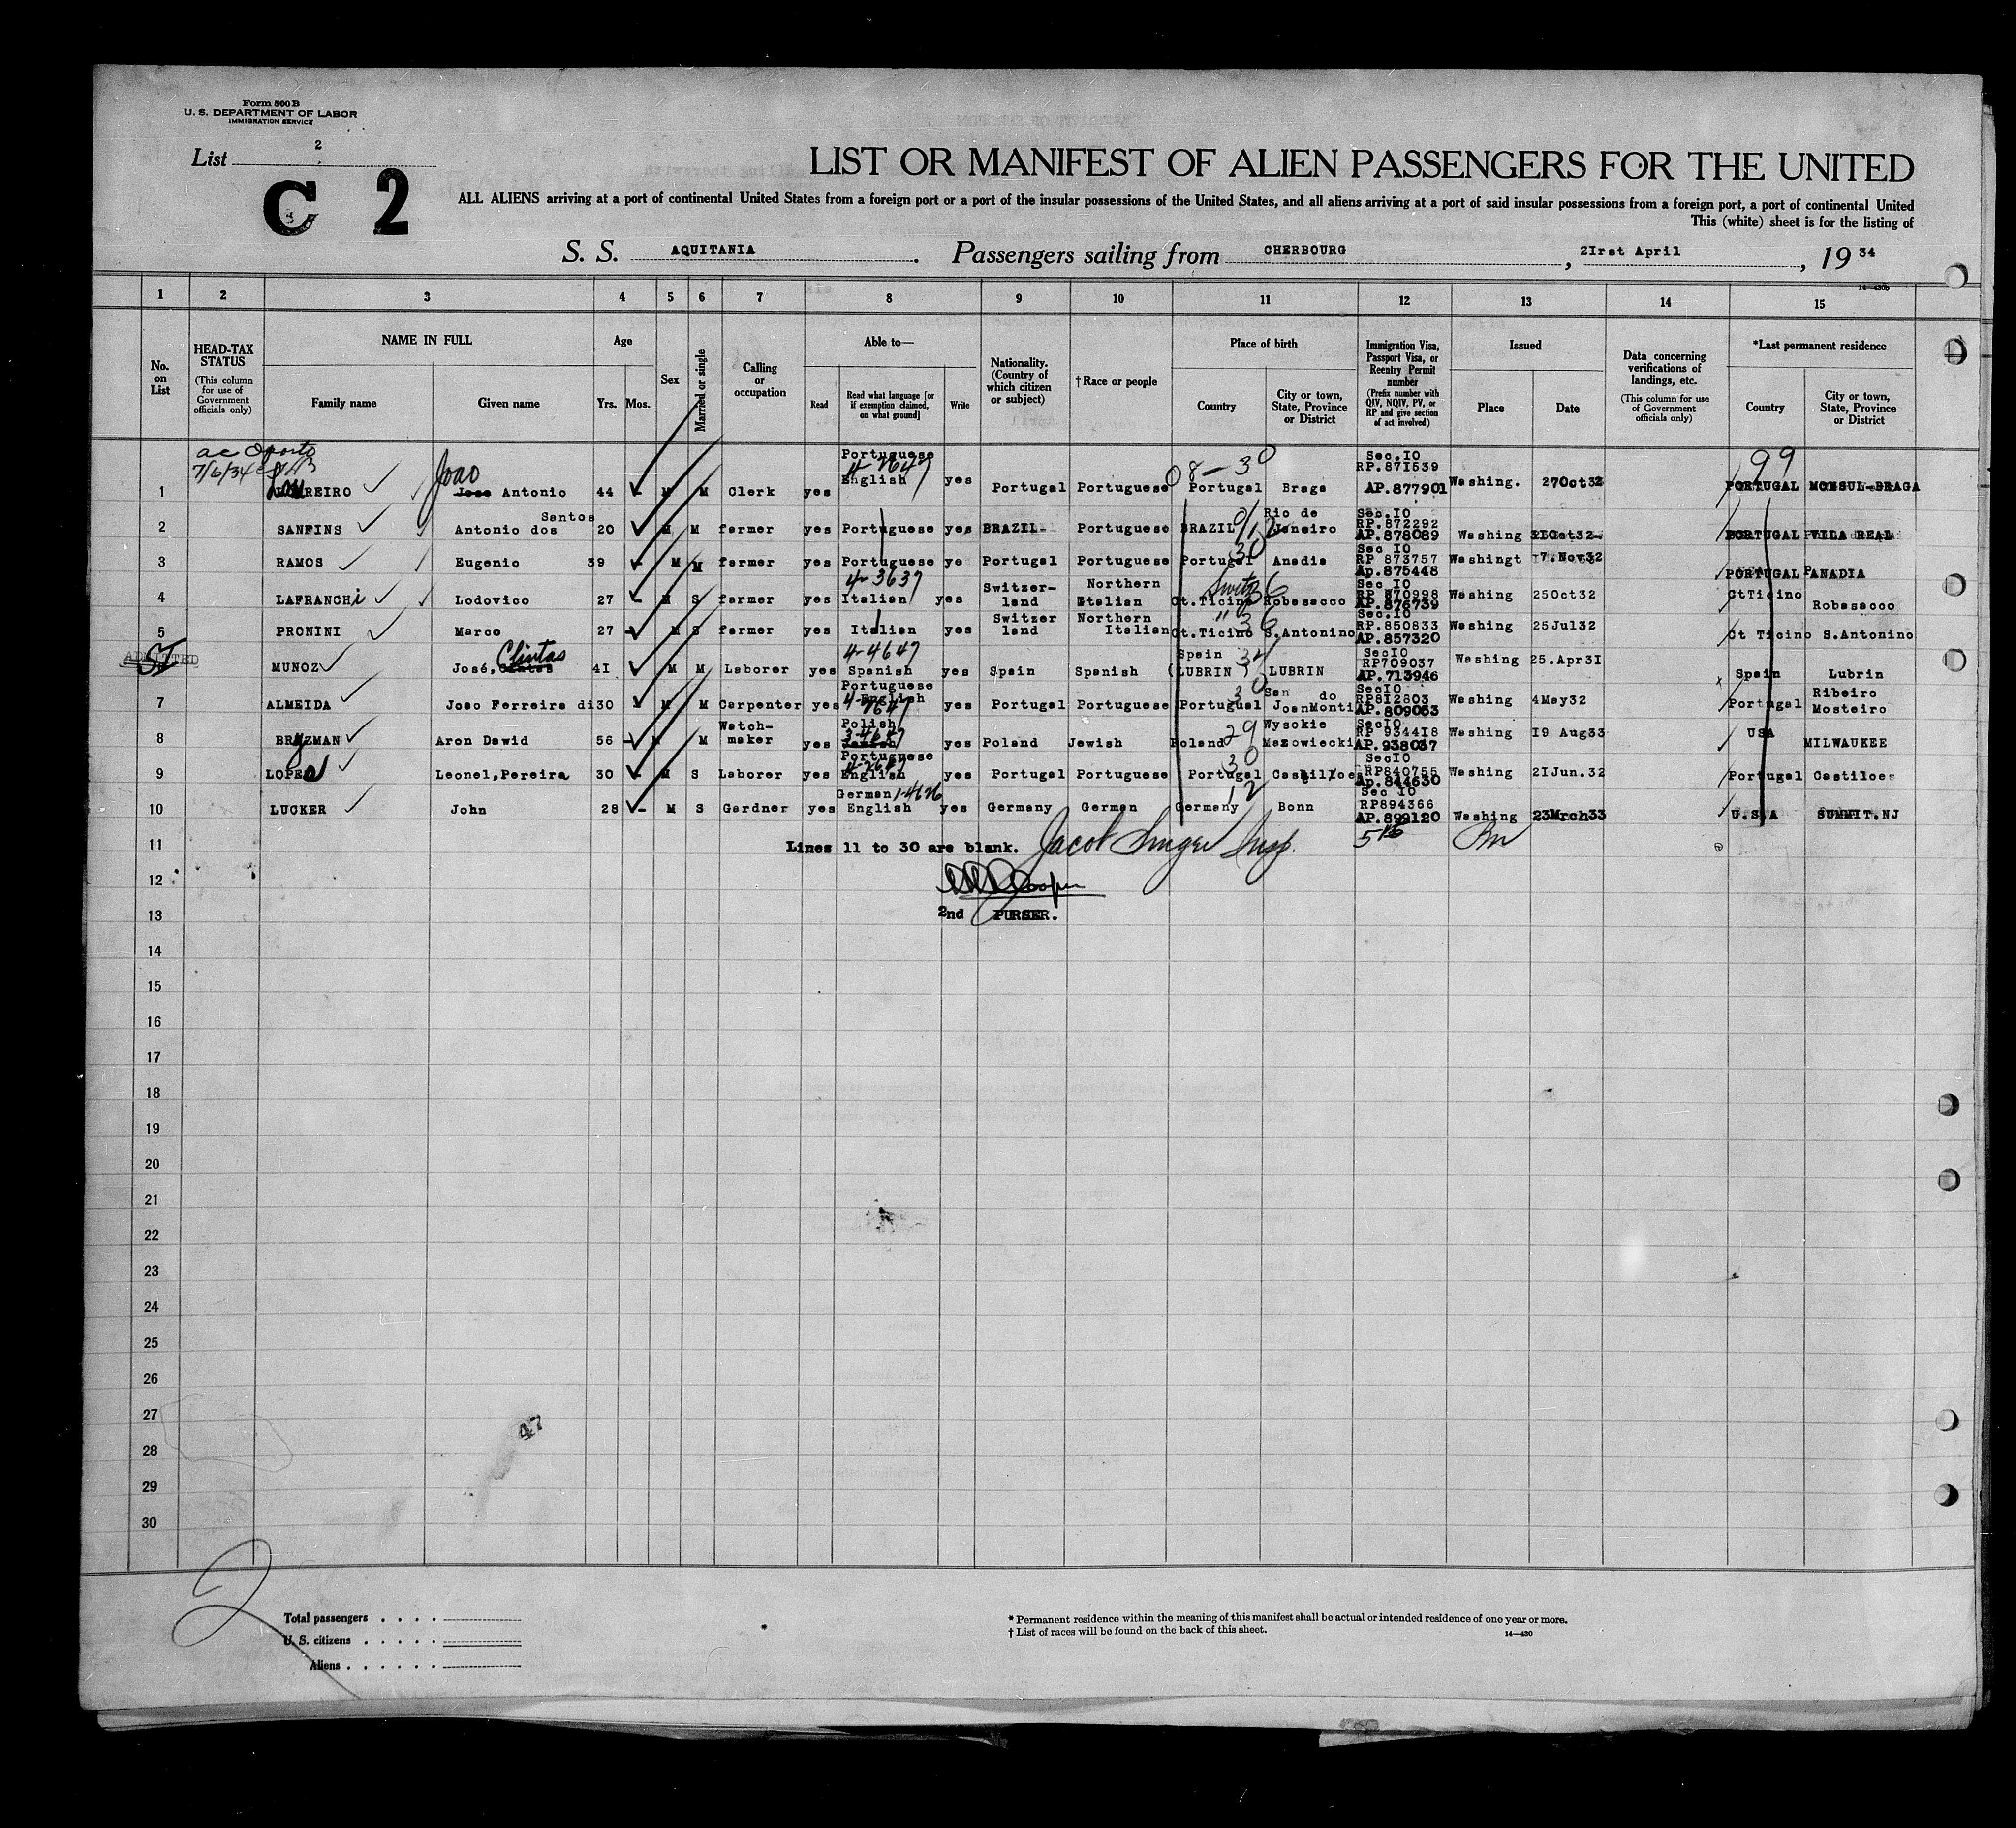 Form 500 B
U. S. DEPARTMENT OF LABOR
IMMIGRATION SERVICE
List 2
C 2
LIST OR MANIFEST OF ALIEN PASSENGERS FOR THE UNITED
ALL ALIENS arriving at a port of continental United States from a foreign port or a port of the insular possessions of the United States, and all aliens arriving at a port of said insular possessions from a foreign port, a port of continental United
This (white) sheet is for the listing of
S. S. AQUITANIA. Passengers sailing from CHERBOURG, 2Irst April, 19 34
14-430b
1 2 3 4 5 6 7 8 9 10 11 12 13 14 15
No. on List
HEAD-TAX STATUS (This column for use of Government officials only)
NAME IN FULL
Family name
Given name
Age
Yrs.
Mos.
Sex
Married or single
Calling or occupation
Able to—
Read
Read what language [or if exemption claimed, on what ground]
Write
Nationality. (Country of which citizen or subject)
† Race or people
Place of birth
Country
City or town, State, Province or District
Immigration Visa, Passport Visa, or Reentry Permit number (Prefix number with QIV, NQIV, PV, or RP and give section of act involved)
Issued
Place
Date
Data concerning verifications of landings, etc. (This column for use of Government officials only)
*Last permanent residence
Country
City or town, State, Province or District
ac Oporto
7/6/34
1 REIRO Joao Jose Antonio 44 - M M Clerk yes Portuguese English 4-7647 yes Portugal Portuguese 08-30 Portugal Braga Sec.IO RP.871539 AP.877901 Washing. 27Oct32 99 PORTUGAL BRAGA
2 SANFINS Antonio dos Santos 20 M M farmer yes Portuguese yes BRAZIL Portuguese BRAZIL Rio de Janeiro Sec.IO RP.872292 AP.878089 Washing Oct32 PORTUGAL VILA REAL
3 RAMOS Eugenio 39 - M M farmer yes Portuguese ye Portugal Portuguese 30 Portugal Anadia Sec IO RP 873757 Ap.875448 Washingt 7.Nov32 PORTUGAL ANADIA
4 LAFRANCHi Lodovico 27 - M S farmer yes 4-3637 Italian yes Switzer-land Northern Italian Switz 36 Ct.Ticino Robasacco Sec IO RP 870998 AP.876739 Washing 25Oct32 CtTicino Robasacco
5 PRONINI Marco 27 - M S farmer yes Italian yes Switzer land Northern Italian " 36 Ct.Ticino S.Antonino Sec.IO RP.850833 AP.857320 Washing 25Jul32 Ct Ticino S.Antonino
ADMITTED SI MUNOZ José, Clintas 4I M M Laborer yes 4-4647 Spanish yes Spain Spanish Spain (LUBRIN) LUBRIN SecIO RP709037 AP.713946 Washing 25.Apr3I Spain Lubrin
7 ALMEIDA Joao Ferreira di 30 - M M Carpenter yes Portuguese English 4-7647 yes Portugal Portuguese 30 Portugal San do JoanMonti SecIO RP8I2803 AP.809053 Washing 4May32 Portugal Ribeiro Mosteiro
8 BRyZMAN Aron Dawid 56 - M M Watch-maker yes Polish yes Poland Jewish 29 Poland Wysokie Mazowiecki SecIO RP 9344I8 AP.938037 Washing I9 Aug33 USA MILWAUKEE
9 LOPES Leonel,Pereira 30 - M S Laborer yes Portuguese English yes Portugal Portuguese 30 Portugal Castiloes SecIO RP840755 Ap.844630 Washing 2IJun.32 Portugal Castiloes
10 LUCKER John 28 - M S Gardner yes German English yes Germany German 12 Germany Bonn Sec IO RP894366 AP.899120 Washing 23Mrch33 U.S.A SUMMIT.NJ
11 Lines 11 to 30 are blank. Jacob Singer Insp.
12
13 2nd PURSER.
14
15
16
17
18
19
20
21
22
23
24
25
26
27
47
28
29
30
2
Total passengers
U. S. citizens
Aliens
* Permanent residence within the meaning of this manifest shall be actual or intended residence of one year or more.
† List of races will be found on the back of this sheet.
14—430